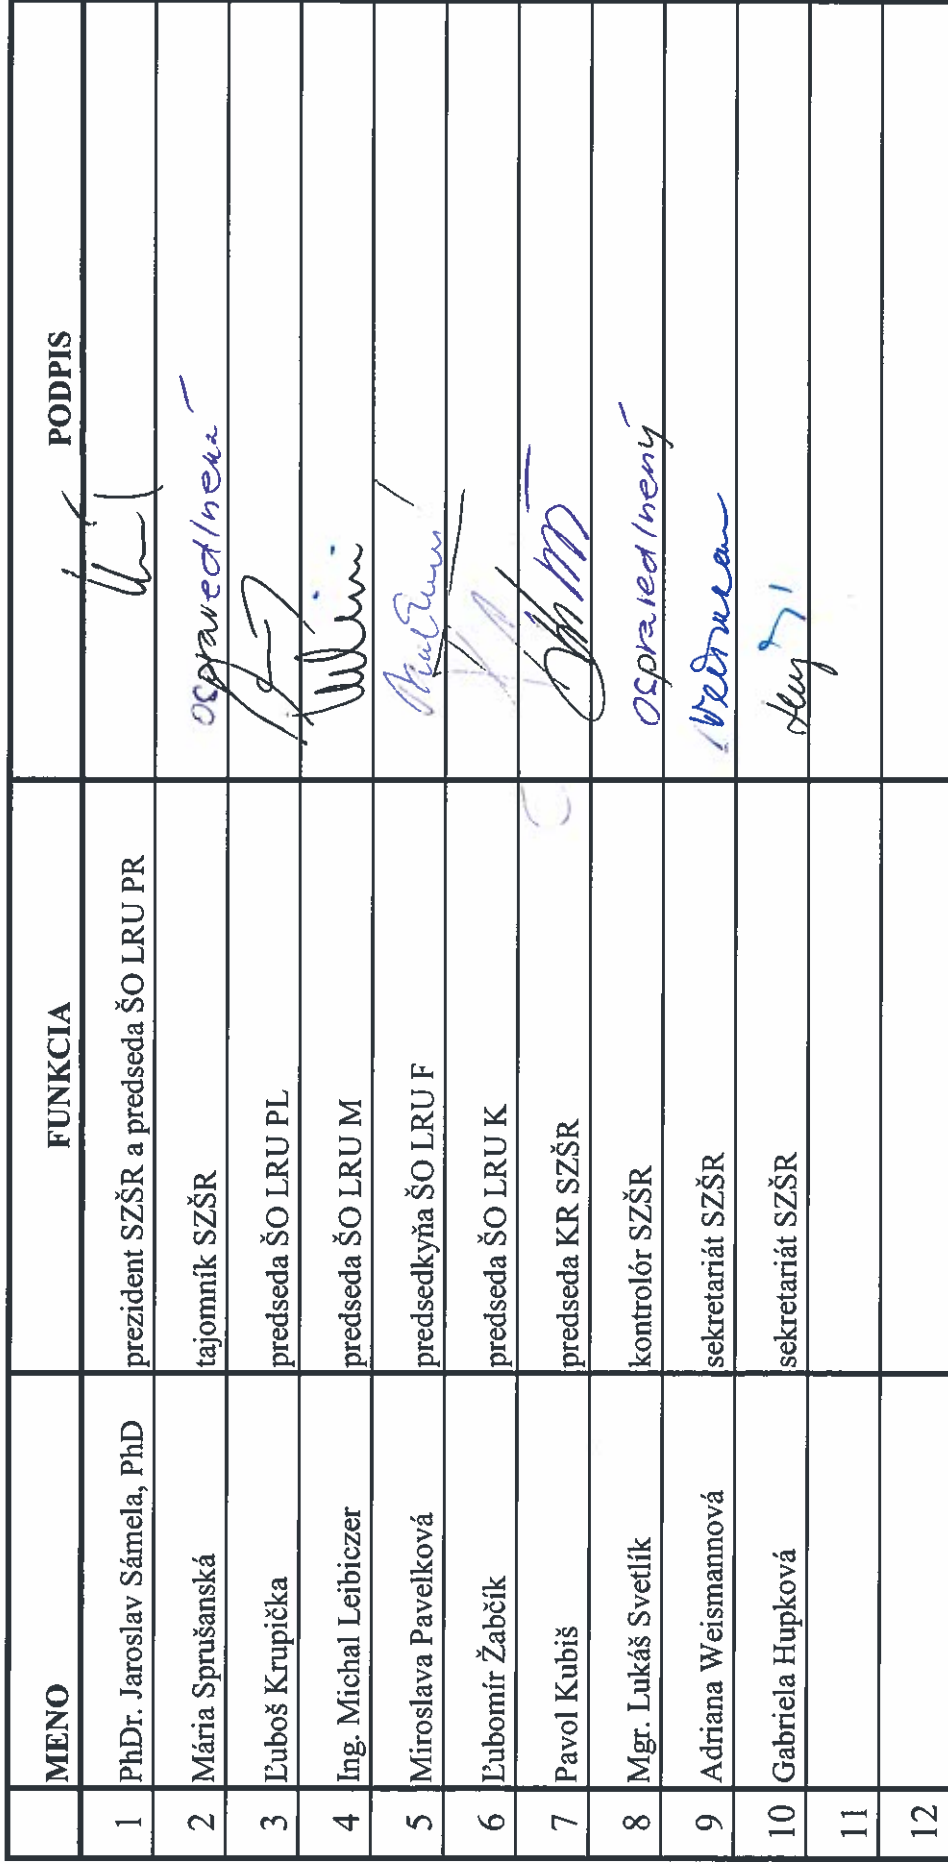 MENO FUNKCIA PODPIS
1 PhDr. Jaroslav Sámela, PhD prezident SZŠR a predseda ŠO LRU PR
2 Mária Sprušanská tajomník SZŠR ospravedlnená
3 Ľuboš Krupička predseda ŠO LRU PL
4 Ing. Michal Leibiczer predseda ŠO LRU M
5 Miroslava Pavelková predsedkyňa ŠO LRU F
6 Ľubomír Žabčík predseda ŠO LRU K
7 Pavol Kubiš predseda KR SZŠR
8 Mgr. Lukáš Svetlík kontrolór SZŠR ospravedlnený
9 Adriana Weismannová sekretariát SZŠR
10 Gabriela Hupková sekretariát SZŠR
11
12